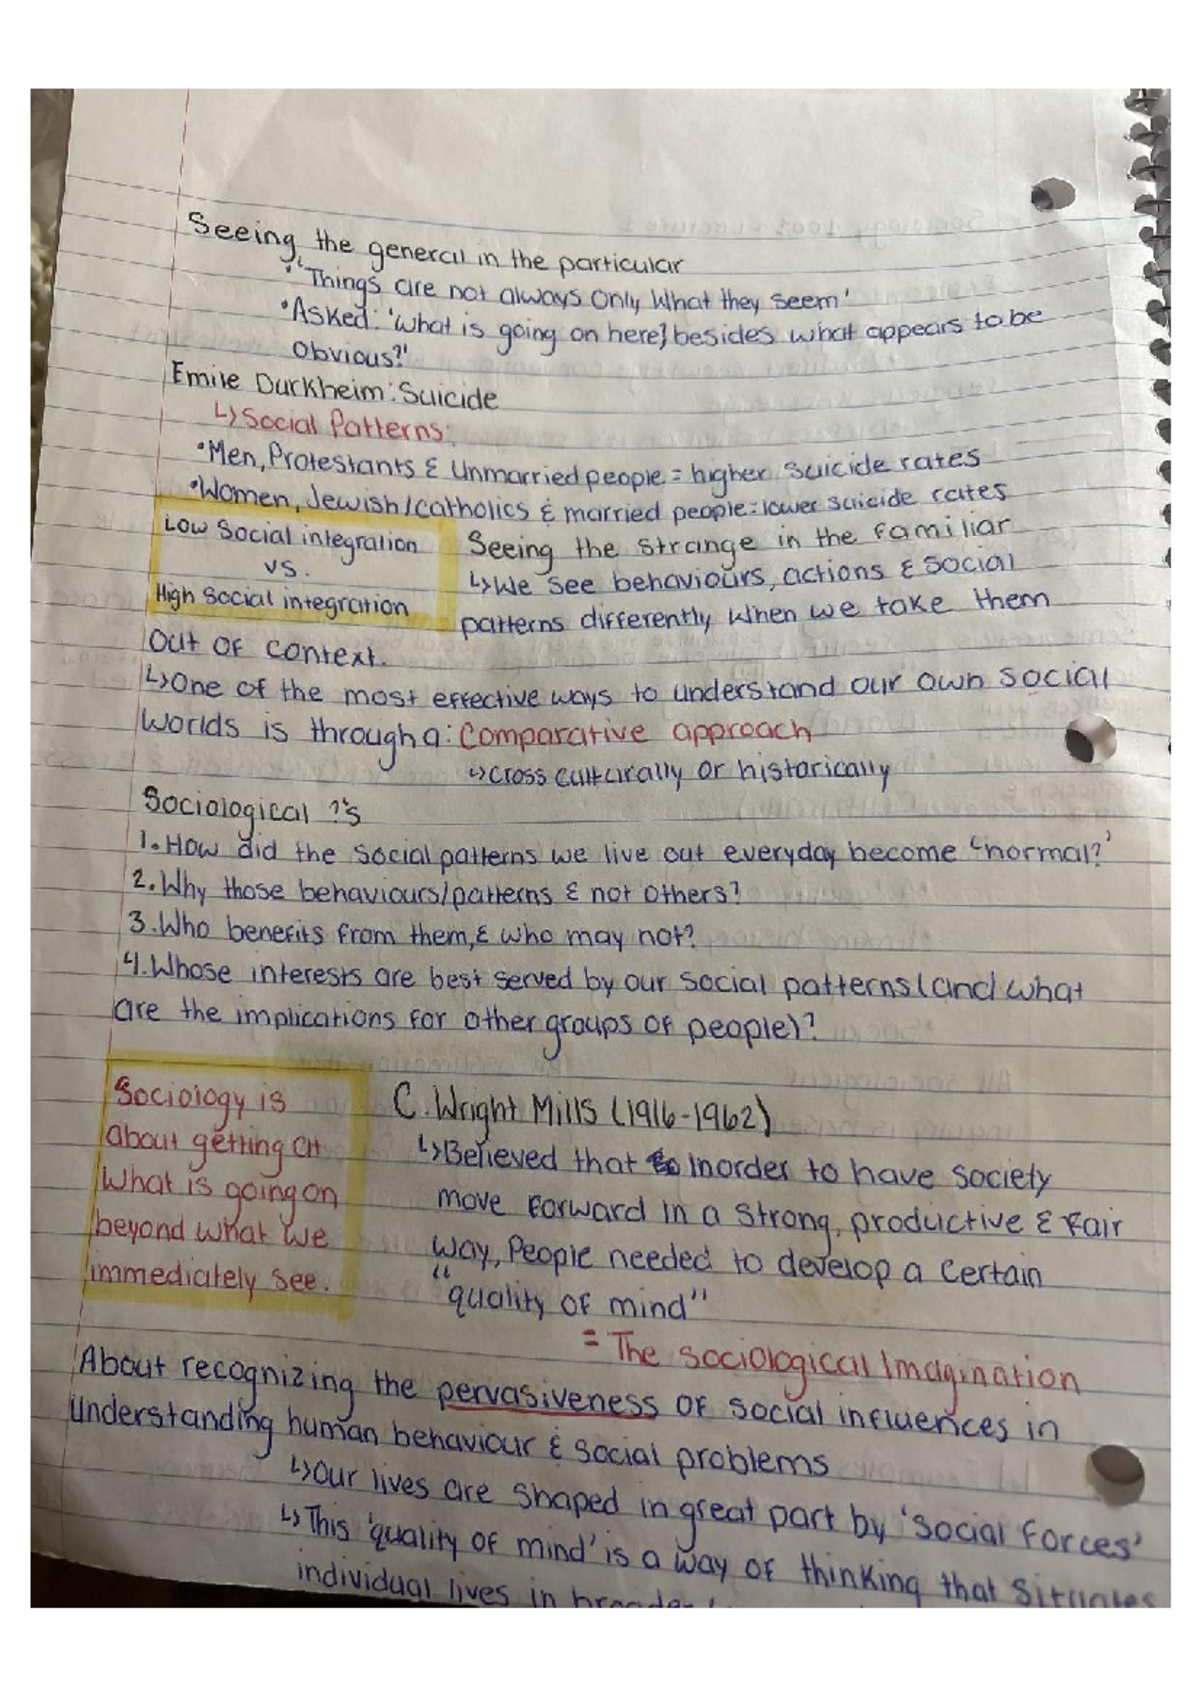 Seeing the general in the particular
• 'Things are not always only what they seem'
• Asked: 'what is going on here} besides what appears to be
obvious?'
Emile Durkheim: Suicide
↳ Social Patterns:
• Men, Protestants & Unmarried people = higher suicide rates
• Women, Jewish/catholics & married people = lower suicide rates
Low Social integration
vs.
High Social integration
Seeing the strange in the familiar
↳ We see behaviours, actions & social
patterns differently when we take them
out of context.
↳ One of the most effective ways to understand our own social
worlds is through a: Comparative approach
↳ cross culturally or historically
Sociological ?'s
1. How did the social patterns we live out everyday become 'normal?'
2. Why those behaviours/patterns & not others?
3. Who benefits from them, & who may not?
4. Whose interests are best served by our social patterns (and what
are the implications for other groups of people)?
Sociology is
about getting at
What is going on
beyond what we
immediately see.
C. Wright Mills (1916-1962)
↳ Believed that inorder to have society
move forward in a strong, productive & fair
way, People needed to develop a certain
"quality of mind"
= The sociological Imagination
About recognizing the pervasiveness of social influences in
understanding human behaviour & social problems
↳ our lives are shaped in great part by 'social forces'
↳ This 'quality of mind' is a way of thinking that situates
individual lives in broader